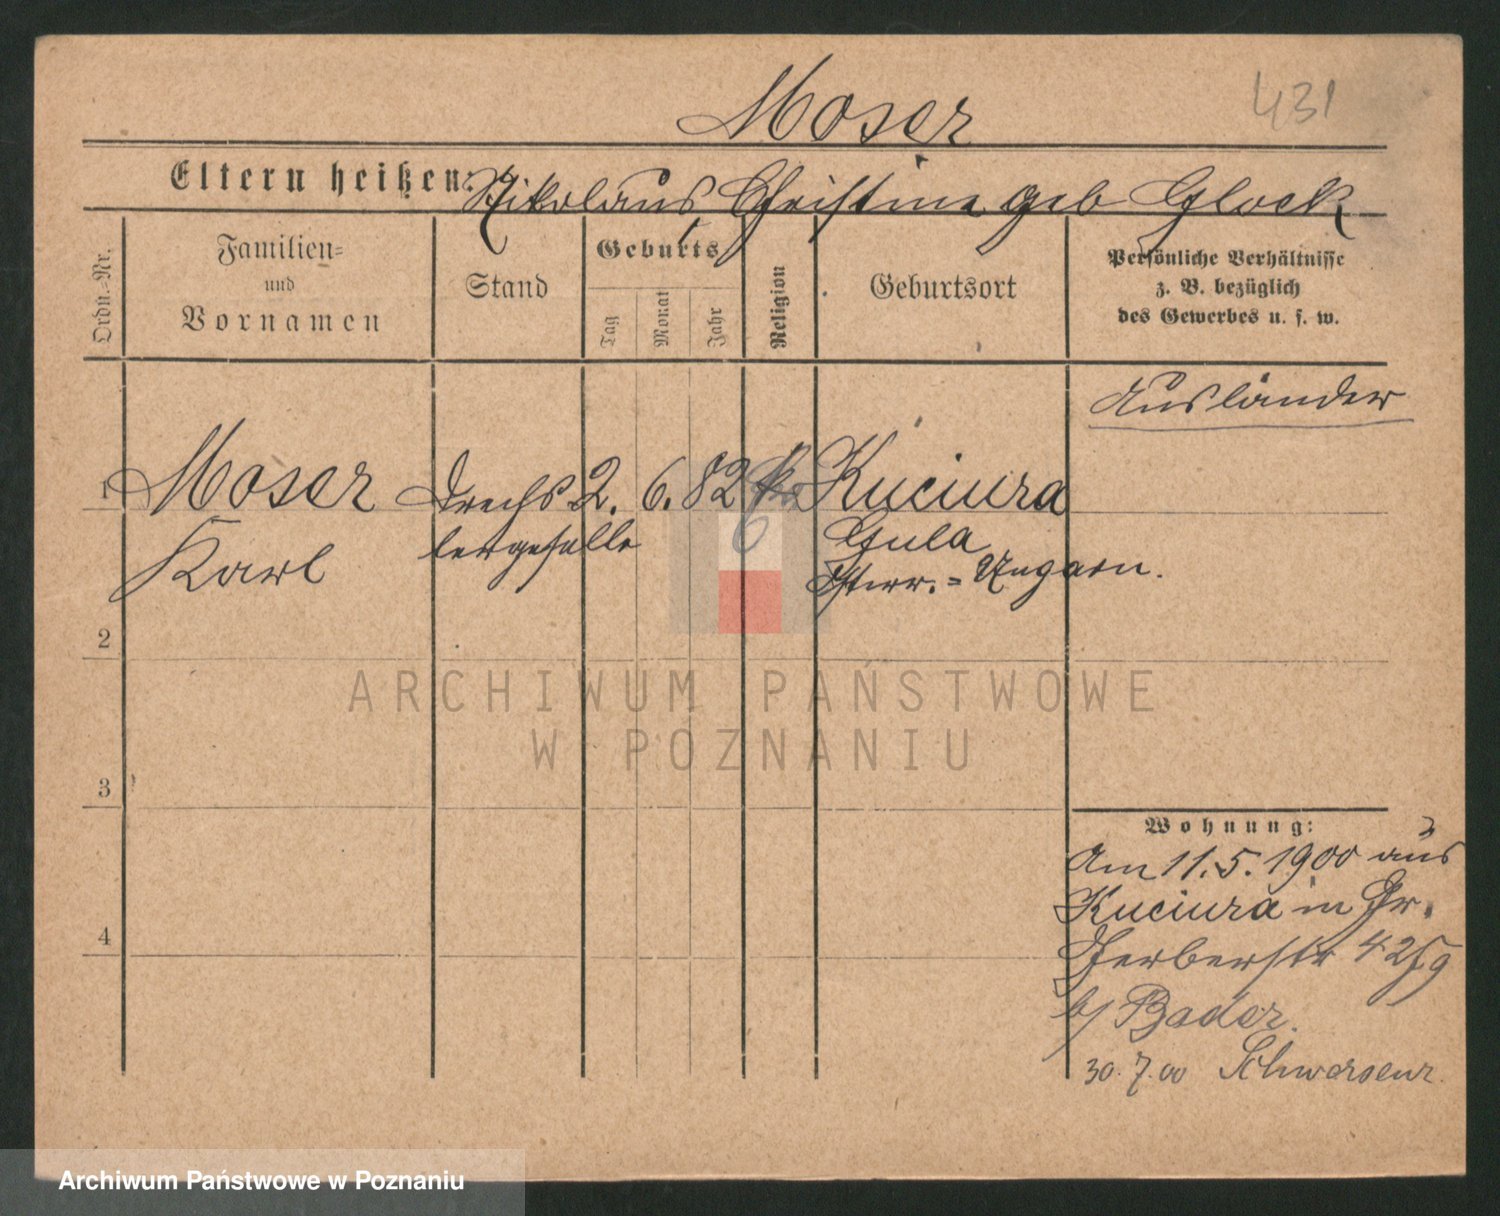 Moser
431
Eltern heißen: Nikolaus, Christine geb Glock
Ordn.-Nr.
Familien-
und
Vornamen
Stand
Geburts
Tag
Monat
Jahr
Religion
Geburtsort
Persönliche Verhältnisse
z. B. bezüglich
des Gewerbes u. s. w.
Ausländer
1 Moser Drechs 2. 6. 82 Kuciura
Karl lergeselle 6 Gula
Österr.=Ungarn.
2
ARCHIWUM PAŃSTWOWE
W POZNANIU
3
Wohnung:
Am 11.5.1900 aus
Kuciura in Gr.
Gerberstr 42
b/ Bader.
30.7.00 Schwersenz
4
Archiwum Państwowe w Poznaniu